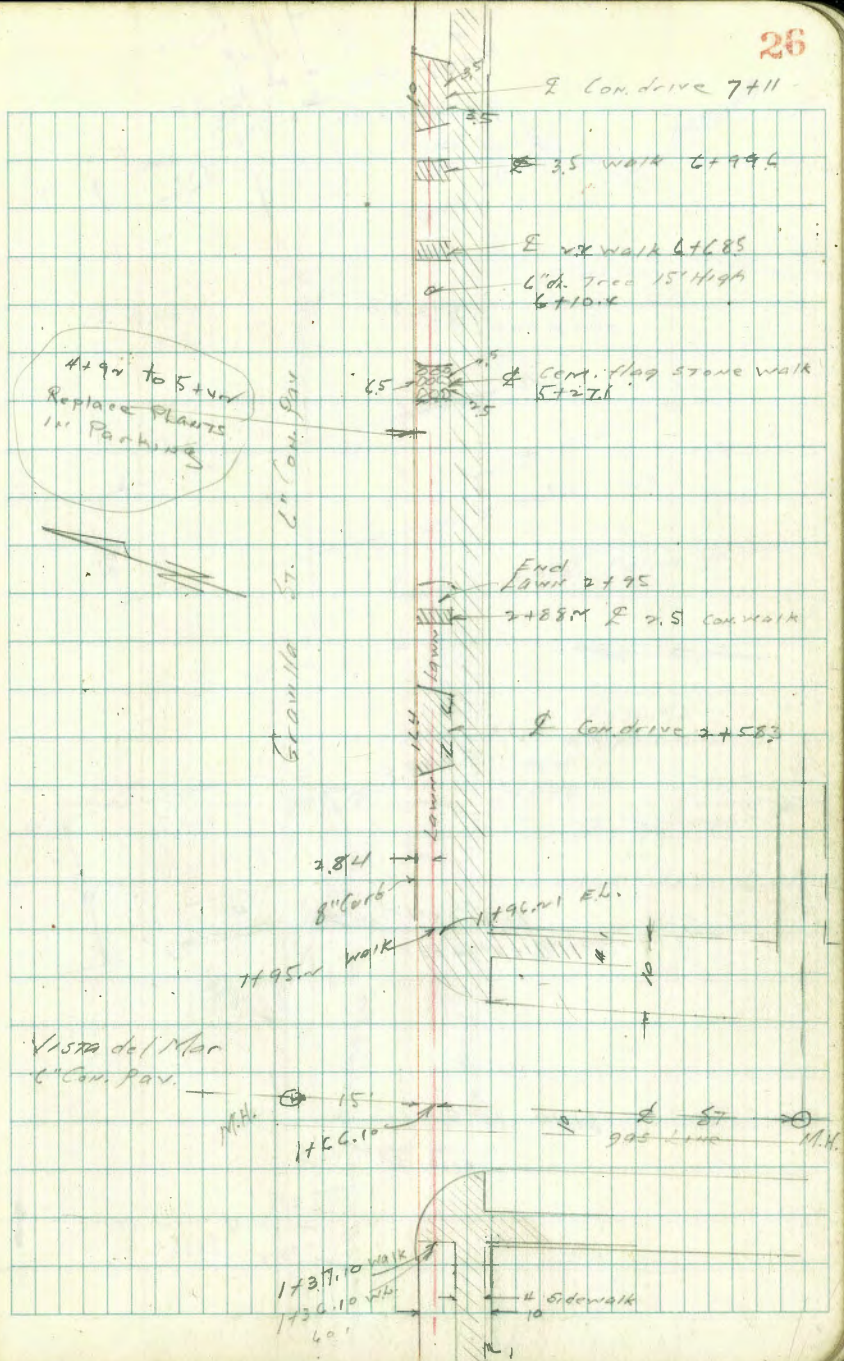 26
10
3.5
3.5
℄ Con. drive 7+11
℄ 3.5 walk 6+99.6
℄ 2.2 walk 6+68.5
6" di. Tree 15' High
6+10.4
4+92 to 5+42
Replace Plants
in Parking
6.5
2.5
2.5
℄ Cem. flag stone walk
5+27.1
Gravilla St. 6" Con. Pav
End
Lawn 2+95
2+88.2 ℄ 2.5 con. walk
Lawn
16.4
℄ Con. drive 2+58.3
Lawn
2.84
8" Curb
1+96.21 E.L.
1+95.2 walk
4
10
Vista del Mar
6" Con. Pav.
M.H.
15'
1+66.10
10
℄ 87
gas Line
M.H.
1+37.10 walk
1+36.10
4 Sidewalk
10